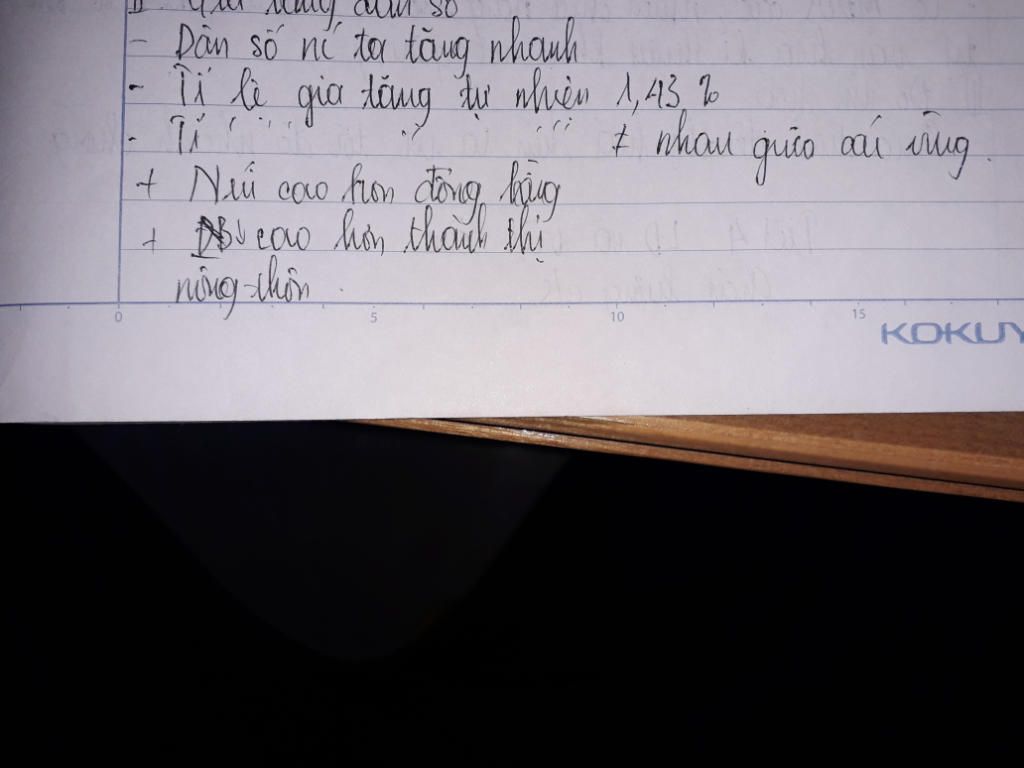 II Gia tăng dân số
- Dân số nc ta tăng nhanh
- Tỉ lệ gia tăng tự nhiên 1,43 %
- Tỉ " " " " " " ≠ nhau giữa các vùng.
+ Núi cao hơn đồng bằng
+ cao hơn thành thị
nông thôn.
0 5 10 15
KOKUY